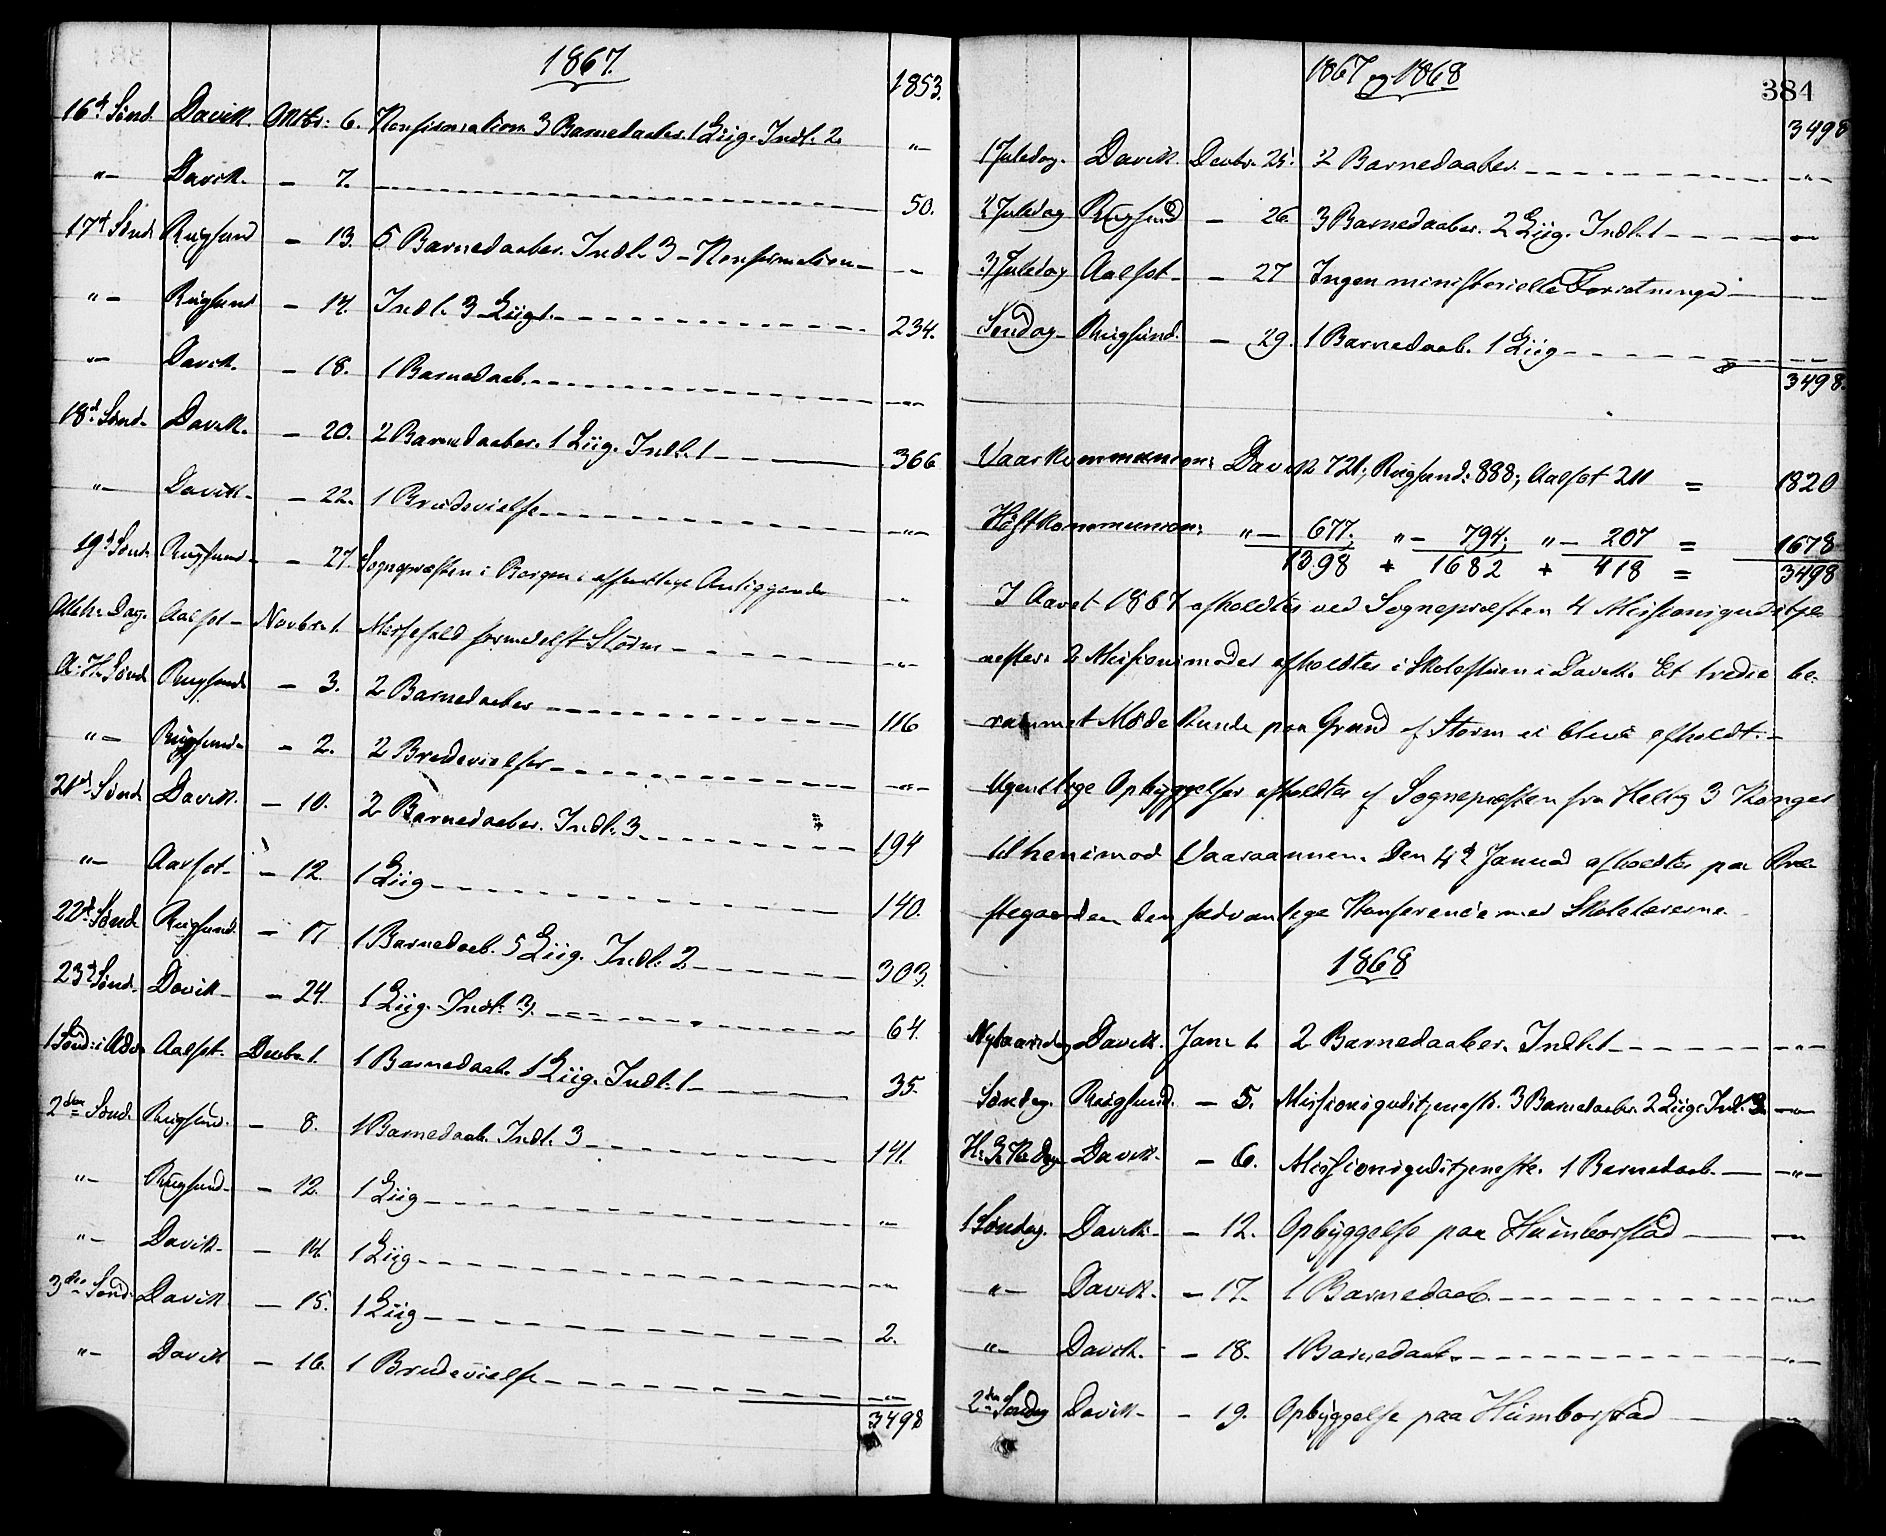 1867.
1853.
16d. Sønd. Davik. Oktbr: 6. Konfirmation. 3 Barnedaaber. 1 Liig. Indl. 2. "
"– Davik. – 7. 50.
17d Sønd Rugsund – 13. 5 Barnedaaber. Indl. 3 – Konfirmation –
"– Rugsund – 14. Indl. 3 Liigt. 234.
"– Davik. – 18. 1 Barnedaab.
18d. Sønd. Davik. – 20. 2 Barnedaaber. 1 Liig. Indl. 1 366
"– Davik. – 22. 1 Brudevielse
19d Sønd. Rugsund – 27. Sognepræsten i Bergen i offentlige Anliggende
Alleh. Dag. Aalfot – Novbr. 1. Messefald formedelst Storm
A. H. Sønd Rugsund – 3. 2 Barnedaaber 116
"– Rugsund – 2. 2 Brudevielser
21d Sønd. Davik. – 10. 2 Barnedaaber. Indl. 3 194
"– Aalfot – 12. 1 Liig 140.
22d Sønd Rugsund. – 17 1 Barnedaab. 5 Liig. Indl. 2 303.
23d Sønd. Davik – 24. 1 Liig. Indl. 3. 64.
1 Sønd: i Adv. Aalfot. Decbr. 1. 1 Barnedaab. 1 Liig. Indl. 1 35.
2den Sønd. Rugsund. – 8. 1 Barnedaab. Indl. 3 141.
"– Rugsund – 12. 1 Liig
"– Davik – 14. 1 Liig
3die Sønd. Davik. – 15. 1 Liig 2.
"– Davik – 16. 1 Brudevielse
3498
1867 og 1868
384
3498
1 Juledag. Davik. Decbr. 25. 2 Barnedaaber.
2 Juledag Rugsund – 26 3 Barnedaaber. 2 Liig. Indl. 1
3 Juledag Aalfot – 27 Ingen ministerielle Forretninger
Søndag – Rugsund. – 29. 1 Barnedaab. 1 Liig
3498.
Vaarkommunion: Davik 721; Rugsund: 888; Aalfot 211 = 1820
Høstkommunion: "– 677; "– 794; "– 207 = 1678
1398 + 1682 + 418 = 3498
I Aaret 1867 afholdtes ved Sognepræsten 4 Missionsgudstje-
nester. 2 Missionsmøder afholdtes i Skolestuen i Davik. Et tredie be-
rammet Møde kunde paa Grund af Storm ei blive afholdt. –
Ugentlige Opbyggelser afholdtes af Sognepræsten fra Hellig 3 Konger
til henimod Vaaraannen. Den 4d Januar afholdtes paa Præ-
stegaarden den sædvanlige Konference med Skolelærerne.
1868
Nytaarsdag Davik. Jan. 1. 2 Barnedaaber. Indl. 1
Søndag. Rugsund. – 5. Missionsgudstjeneste. 3 Barnedaaber. 2 Liig. Indl. 3.
H. 3 K. dag Davik. – 6. Missionsgudstjeneste. 1 Barnedaab.
1 Søndag. Davik. – 12. Opbyggelse paa Humborstad
"– Davik. – 17. 1 Barnedaab.
"– Davik. – 18. 1 Barnedaab.
2den Søndag Davik – 19. Opbyggelse paa Humborstad